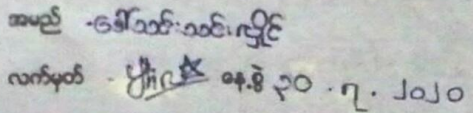 အမည် - ဒေါ်သင်းသင်းလှိုင်
လက်မှတ် - နေ့စွဲ ၃၀ . ၇ . ၂၀၂၀